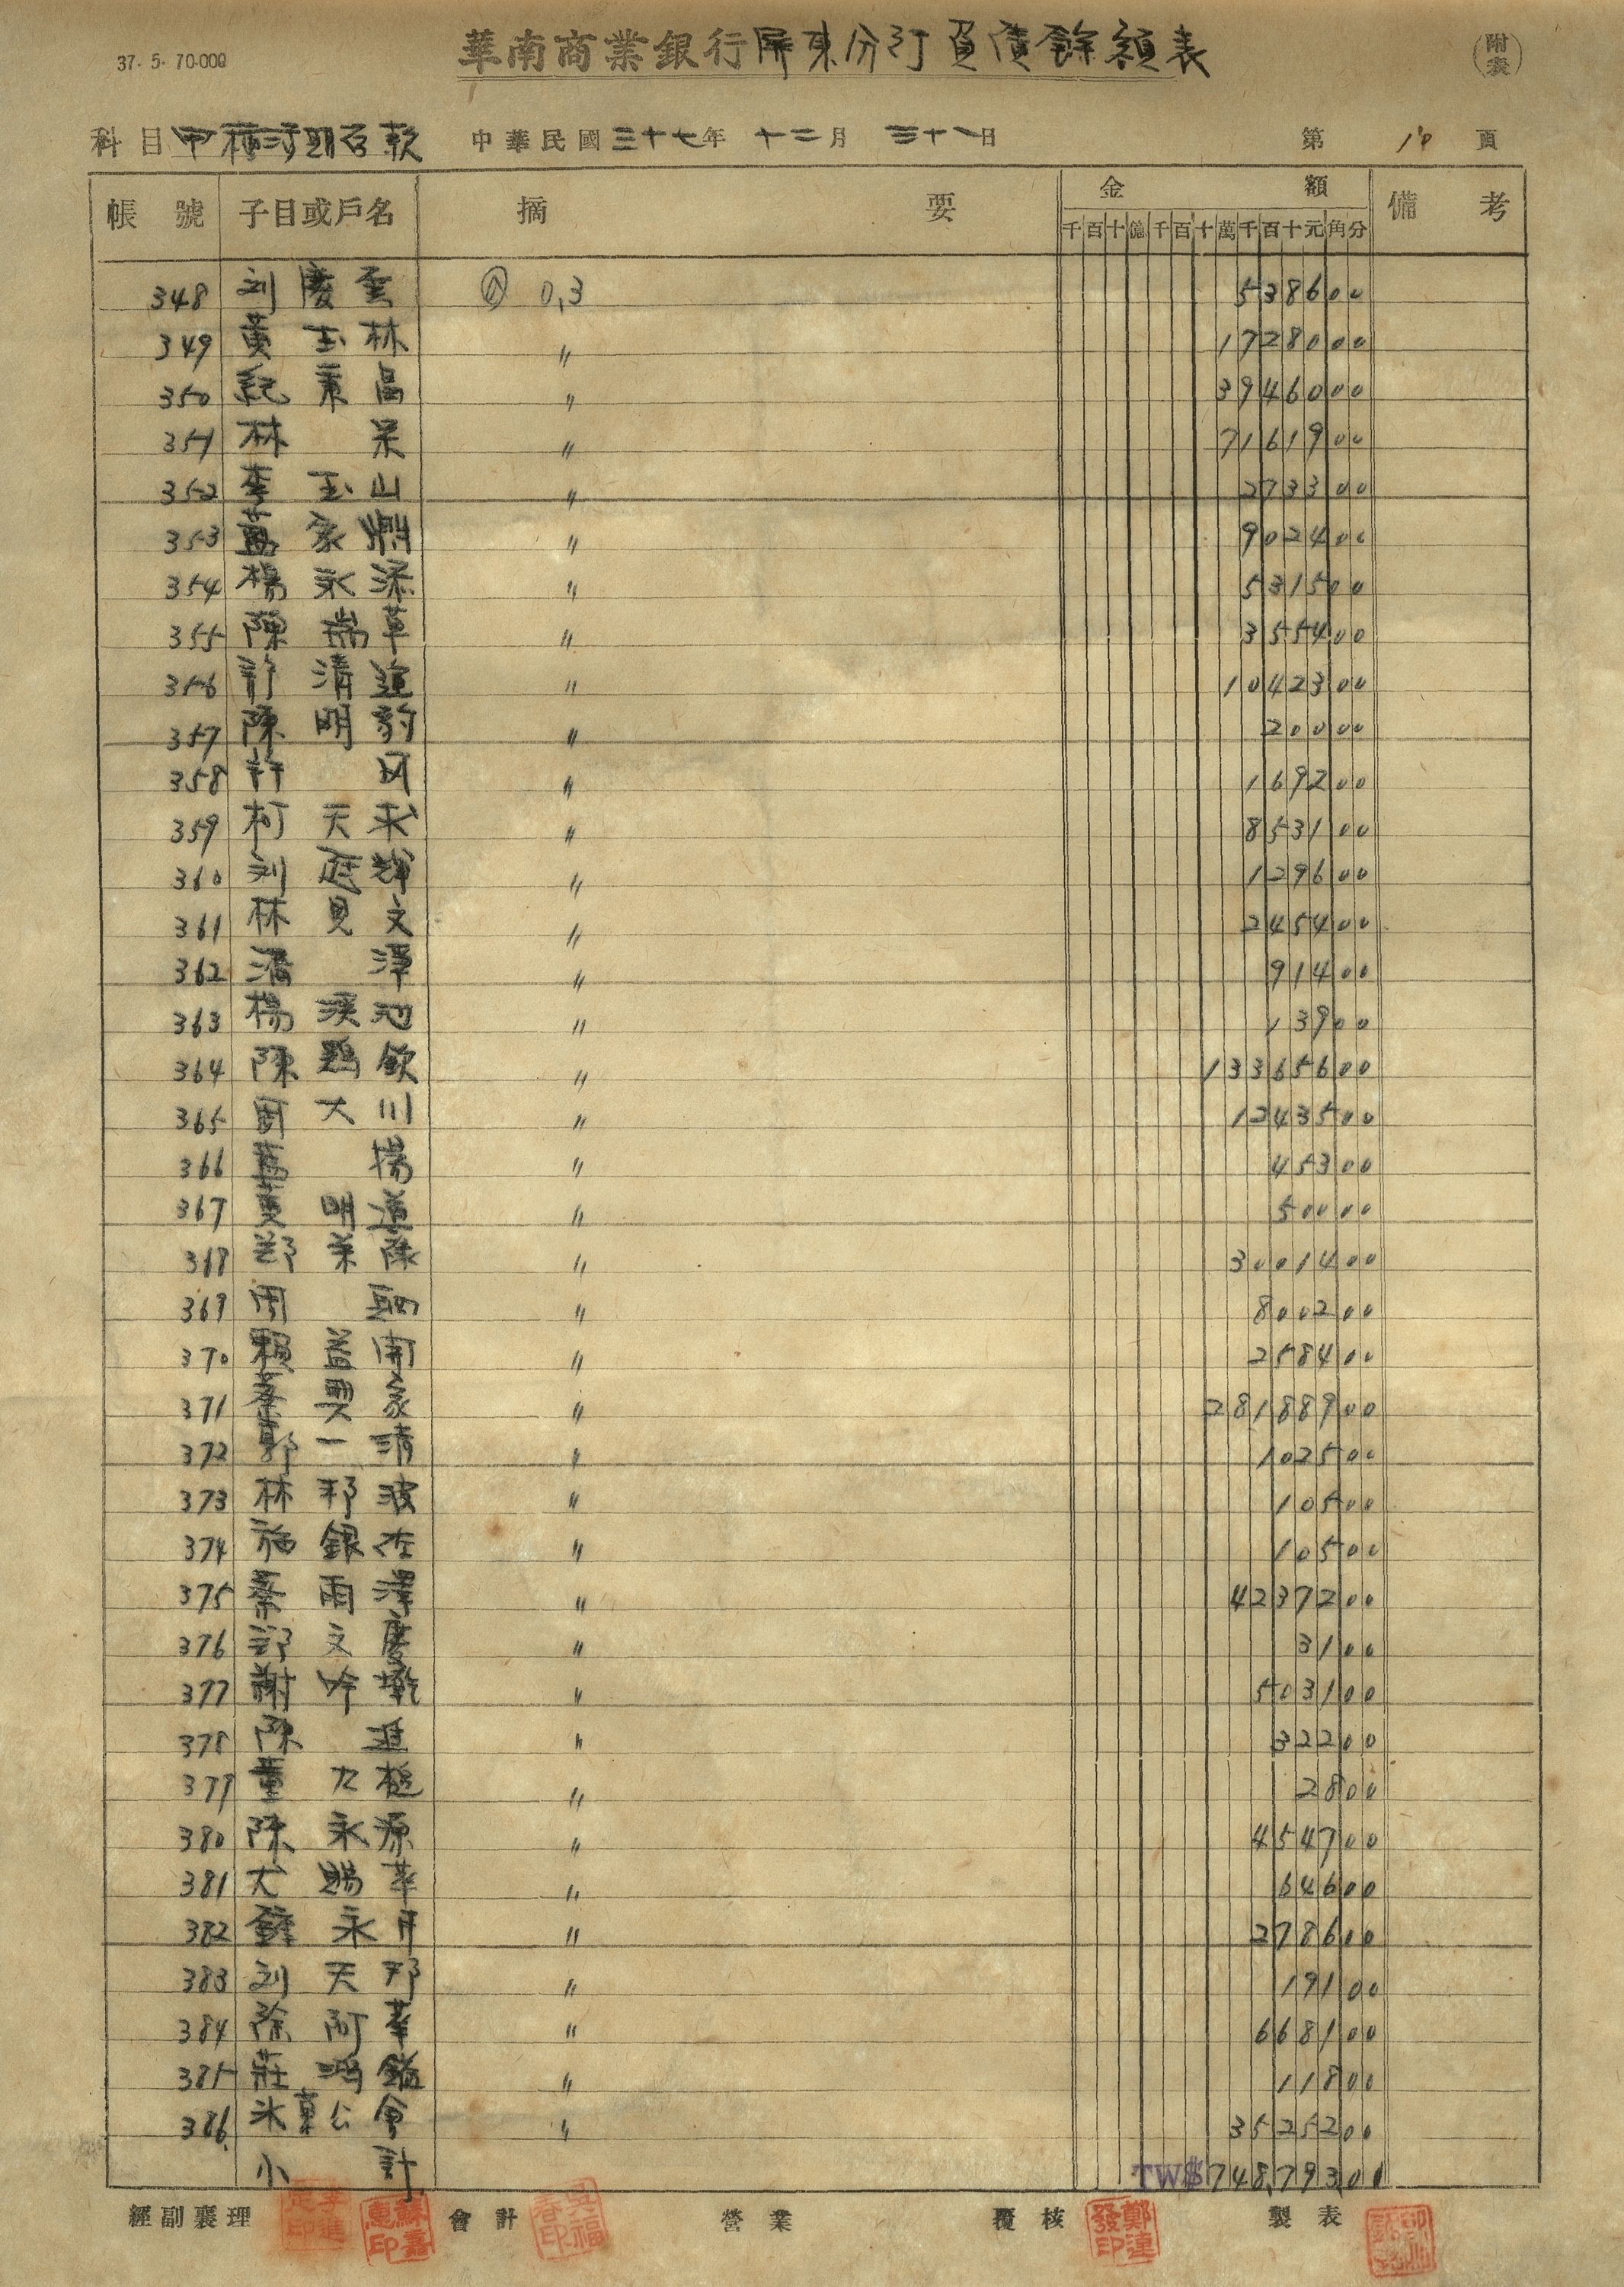 37. 5. 70.000
華南商業銀行屏東分行負債餘額表
(附表)
科目 甲種活期存款 中華民國三十七年 十二月 三十一日 第 10 頁
帳號 子目或戶名 摘要 金額 備考
千百十億千百十萬千百十元角分
348 刘慶雲 0,3 538600
349 黃玉林 〃 1728000
350 紀秉昌 〃 3946000
351 林呆 〃 7161900
352 李玉山 〃 273300
353 萬家 〃 902400
354 楊永添 〃 531500
355 陳瑞草 〃 355400
356 許清連 〃 1042300
357 陳明豹 〃 20000
358 許 〃 169200
359 柯天求 〃 853100
360 刘庭輝 〃 129600
361 林見文 〃 245400
362 潘澤 〃 91400
363 楊漢池 〃 13900
364 陳鵠欽 〃 13365600
365 周大川 〃 1243500
366 萬揚 〃 45300
367 黃明道 〃 50000
368 鄭 〃 3001400
369 周 〃 800200
370 賴益開 〃 258400
371 蔡契家 〃 28188900
372 郭一清 〃 102500
373 林邦波 〃 10500
374 施銀 〃 10500
375 蔡雨澤 〃 4237200
376 鄭文慶 〃 3100
377 謝吟 〃 503100
378 陳進 〃 32200
379 董九 〃 2800
380 陳永源 〃 454700
381 尤賜華 〃 64600
382 薛永月 〃 278600
383 刘天邦 〃 19100
384 徐阿華 〃 668100
385 莊鴻鎰 〃 11800
386 氷菓公會 〃 3525200
小計 TW$748,793.01
經副襄理 會計 營業 覆核 製表
蘇嘉惠印 鄭連發印